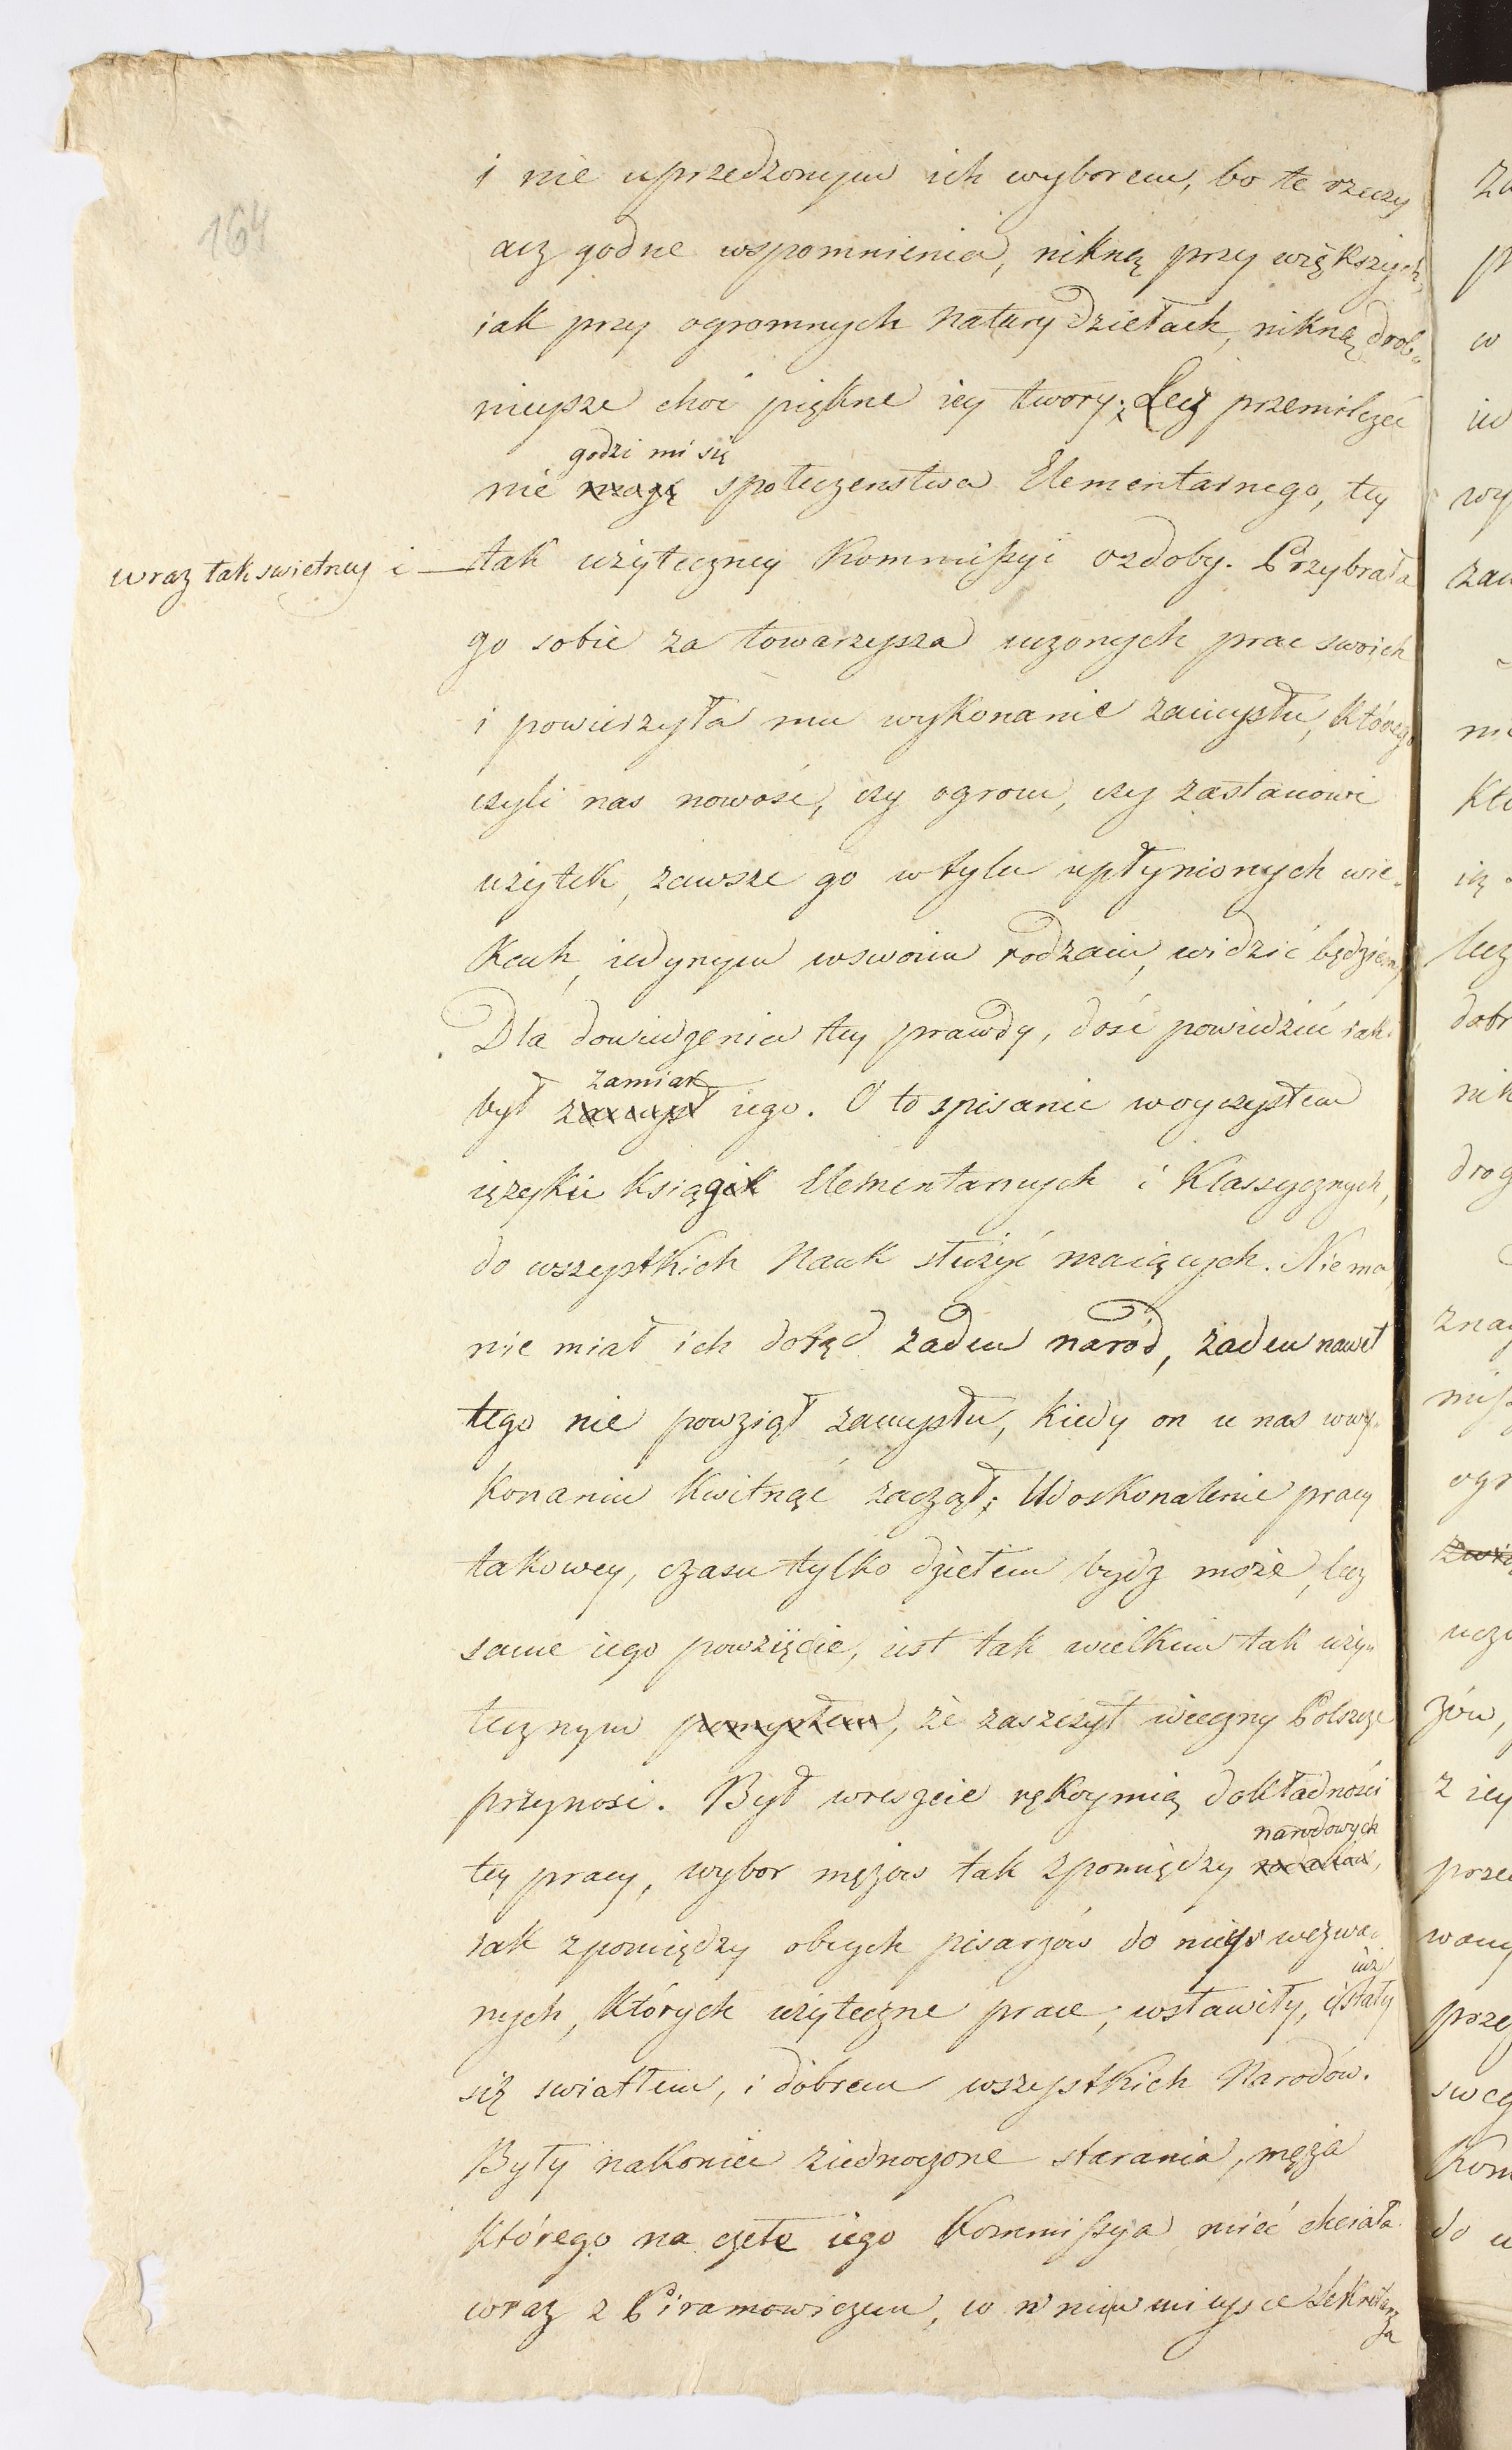 164
i nie uprzedzonym ich wyborem, bo te rzeczy
acz godne wspomnienia, nikną przy większych,
iak przy ogromnych Natury dziełach, nikną drob„
nieysze choć piękne iey twory; Lecz przemilczeć
godzi mi się
nie mogę społeczenstwa Elementarnego, tey
wraz tak swietney i — tak użyteczney Kommissyi ozdoby. Przybrała
go sobie za towarzysza uczonych prac swoich
i powierzyła mu wykonanie zamysłu, którego
czyli nas nowość, czy ogrom, czy zastanowi
użytek, zawsze go w tylu upłynionych wie„
kach, iedynym wswoim rodzaiu, widzić będziem,
Dla dowiedzenia tey prawdy, dość powiedzieć iak
zamiar
był zamysł iego. O to spisanie woyczystem
ięzyku Ksiąg Elementarnych i Klassycznych,
do wszystkich Nauk służyć maiących. Niema,
nie miał ich dotąd żaden naród, żaden nawet
tego nie powziął zamysłu, kiedy on u nas wwy„
konaniu kwitnąć zaczął; Udoskonalenie pracy
takowey, czasu tylko dziełem bydz może, lecz
same iego powzięcie, iest tak wielkim tak uży„
tecznym pomysłem, że zaszczyt wieczny Polszcze
przynosi. Był wreszcie rękoymią dokładności
narodowych
tey pracy, wybor mężow tak zpomiędzy rodaków,
iak zpomiędzy obcych pisarzów do niego wezwa„
iuż
nych, których użyteczne prace, wsławiły, i stały
się swiatłem, i dobrem wszystkich Narodów.
Były nakoniec ziednoczone starania, męża
którego na czele iego Kommissya mieć chciała
wraz z Piramowiczem, w nim mieysce Sekretarza